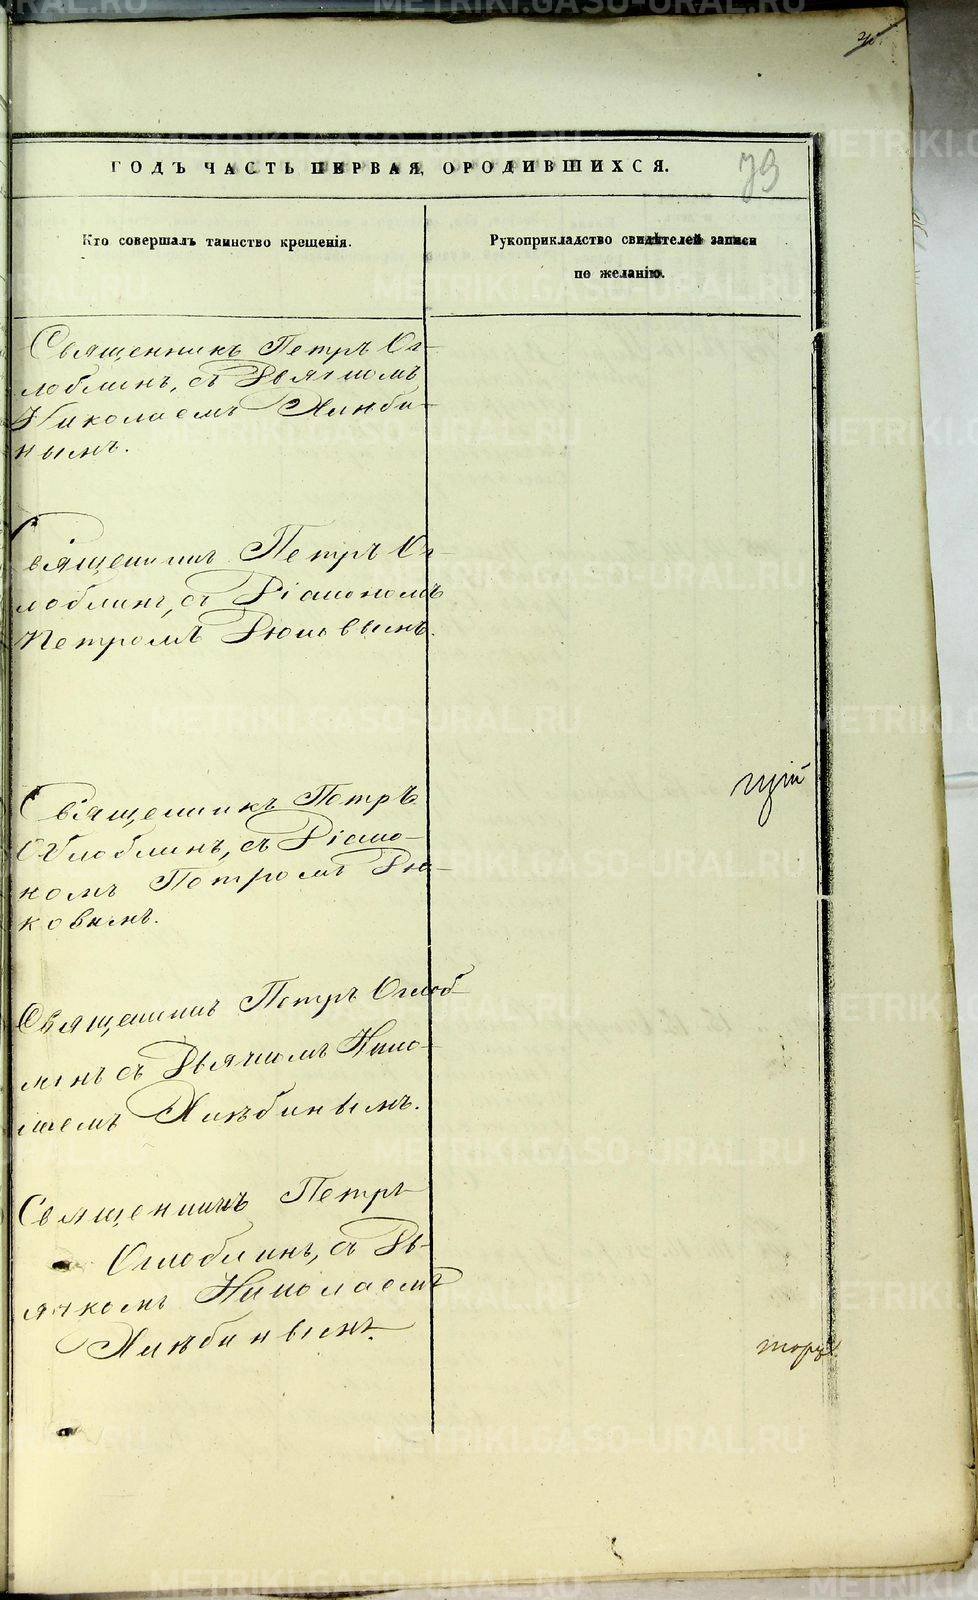 79
ГОДЪ ЧАСТЬ ПЕРВАЯ, О РОДИВШИХСЯ.
Кто совершалъ таинство крещенія.
Рукоприкладство свидѣтелей записи
по желанію.
Священникъ Петръ Ог-
лоблинъ, съ Дьячкомъ
Николаемъ Хлѣби-
нымъ.
Священникъ Петръ Ог-
лоблинъ, съ Діакономъ
Петромъ Дюковымъ.
Священникъ Петръ
Оглоблинъ, съ Діако-
номъ Петромъ Дю-
ковымъ.
Священникъ Петръ Оглоб-
линъ съ Дьячкомъ Нико-
лаемъ Хлѣбинымъ.
Священникъ Петръ
Оглоблинъ, съ Дь-
ячкомъ Николаемъ
Хлѣбинымъ.
METRIKI.GASO-URAL.RU